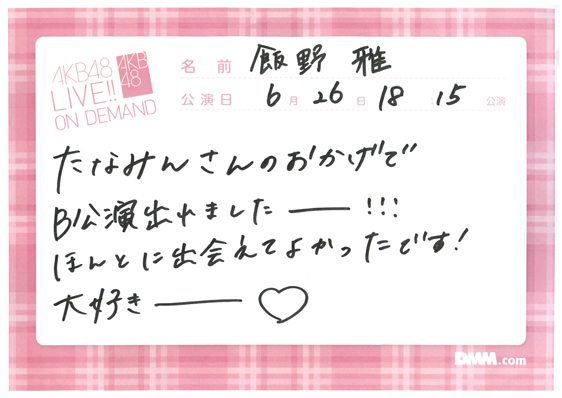 AKB48
LIVE!!
ON DEMAND
AKB
48
名前 飯野 雅
公演日 6月26日 18:15 公演
たなみんさんのおかげで
B公演出れました——!!!
ほんとに出会えてよかったです!
大好き——♡
DMM.com